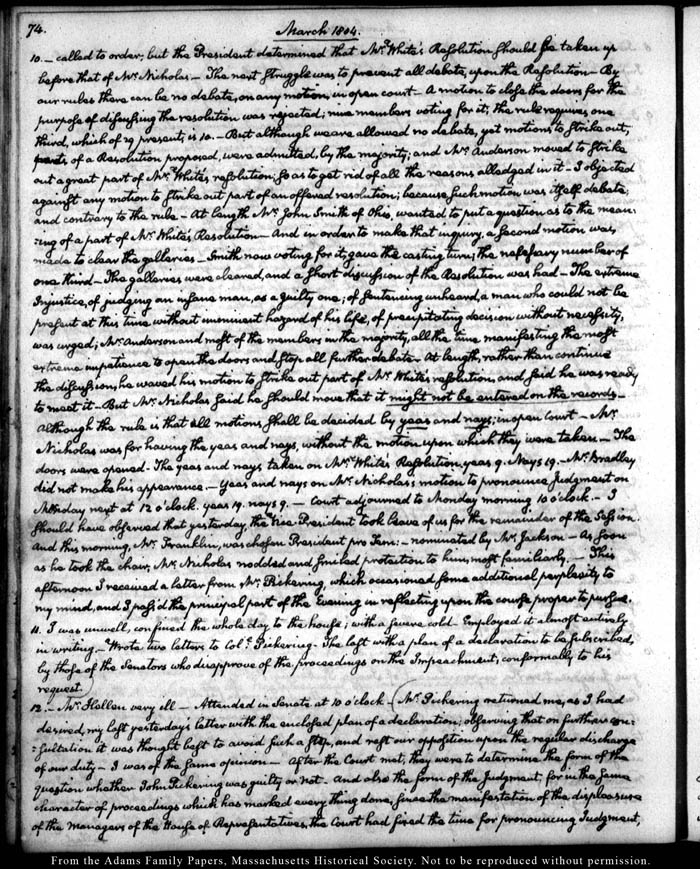 74.
March 1804.
10. – called to order; but the President determined that Mr. White's Resolution should be taken up
before that of Mr. Nicholas – The next struggle was to prevent all debate, upon the Resolution – By
our rules there can be no debate, on any motion, in open court – A motion to close the doors for the
purpose of discussing the resolution was rejected; nine members voting for it; the rule requires one
third, which of 29 present, is 10. – But although we are allowed no debate, yet motions to strike out,
parts, of a Resolution proposed, were admitted, by the majority; and Mr. Anderson moved to strike
out a great part of Mr. White's resolution; so as to get rid of all the reasons alledged in it – I objected
against any motion to strike out part of an offered resolution; because such motion was itself debate;
and contrary to the rule – At length Mr. John Smith of Ohio, wanted to put a question as to the mean-
-ing of a part of Mr. White's Resolution – And in order to make that inquiry, a second motion was,
made to clear the galleries – Smith now voting for it, gave the casting turn; the necessary number of
one third – The galleries were cleared, and a short discussion of the Resolution was had – The extreme
Injustice, of judging an insane man, as a guilty one; of sentencing unheard, a man who could not be
present at this time without imminent hazard of his life, of precipitating decision without necessity,
was urged; Mr. Anderson and most of the members in the majority, all the time manifesting the most
extreme impatience to open the doors and stop all further debate – At length, rather than continue
the discussion, he waved his motion to strike out part of Mr. White's resolution, and said he was ready
to meet it – But Mr. Nicholas said he should move that it might not be entered on the records –
Although the rule is that all motions shall be decided by yeas and nays; in open court – Mr.
Nicholas was for having the yeas and nays, without the motion upon which they were taken – The
doors were opened – The yeas and nays taken on Mr. White's Resolution, yeas 9. Nays 19. – Mr. Bradley
did not make his appearance – Yeas and nays on Mr. Nicholas's motion to pronounce Judgment on
Monday next at 12 o'clock. yeas 19. nays 9. – Court adjourned to Monday morning 10 o'clock. – I
should have observed that yesterday, the Vice President took leave of us for the remainder of the Session.
And this morning, Mr. Franklin, was chosen President pro Tem: – nominated by Mr. Jackson – As soon
as he took the chair, Mr. Nicholas nodded and smiled protection to him; most familiarly – This
afternoon I received a letter from Mr. Pickering, which occasioned some additional perplexity to
my mind, and I pass'd the principal part of the Evening in reflecting upon the course proper to pursue.
11. I was unwell, confined the whole day to the house; with a severe cold – Employed it almost entirely
in writing – Wrote two letters to Col: Pickering – The last with a plan of a declaration to be subscribed,
by those of the Senators who disapprove of the proceedings on the Impeachment; conformably to his
request.
12. – Mr. Hellen very ill – Attended in Senate at 10 o'clock – Mr. Pickering returned me, as I had
desired, my last yesterday's letter with the enclosed plan of a declaration; observing that on further con-
-sultation it was thought best to avoid such a step, and rest our opposition upon the regular discharge
of our duty – I was of the same opinion – After the Court met, they were to determine the form of the
question whether John Pickering was guilty or not – And also the form of the Judgment; for in the same
character of proceedings which has marked every thing done, since the manifestation of the displeasure
of the Managers of the House of Representatives, the Court had fixed the time for pronouncing Judgment,
From the Adams Family Papers, Massachusetts Historical Society. Not to be reproduced without permission.